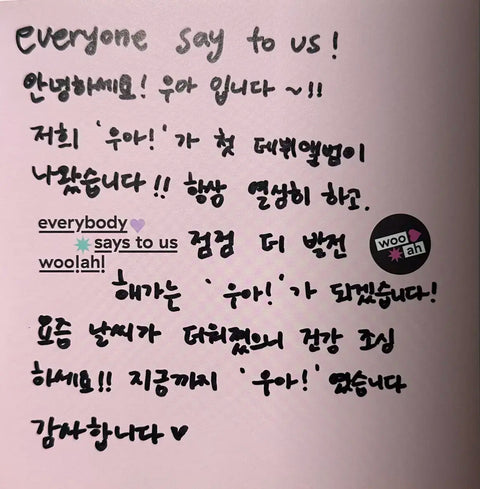 everyone say to us!
안녕하세요! 우아 입니다 ~!!
저희 '우아!'가 첫 데뷔앨범이
나왔습니다!! 항상 열심히 하고.
everybody
says to us
woo!ah!
점점 더 발전
woo
ah
해가는 '우아!'가 되겠습니다!
요즘 날씨가 더워졌으니 건강 조심
하세요!! 지금까지 '우아!' 였습니다
감사합니다 ♥